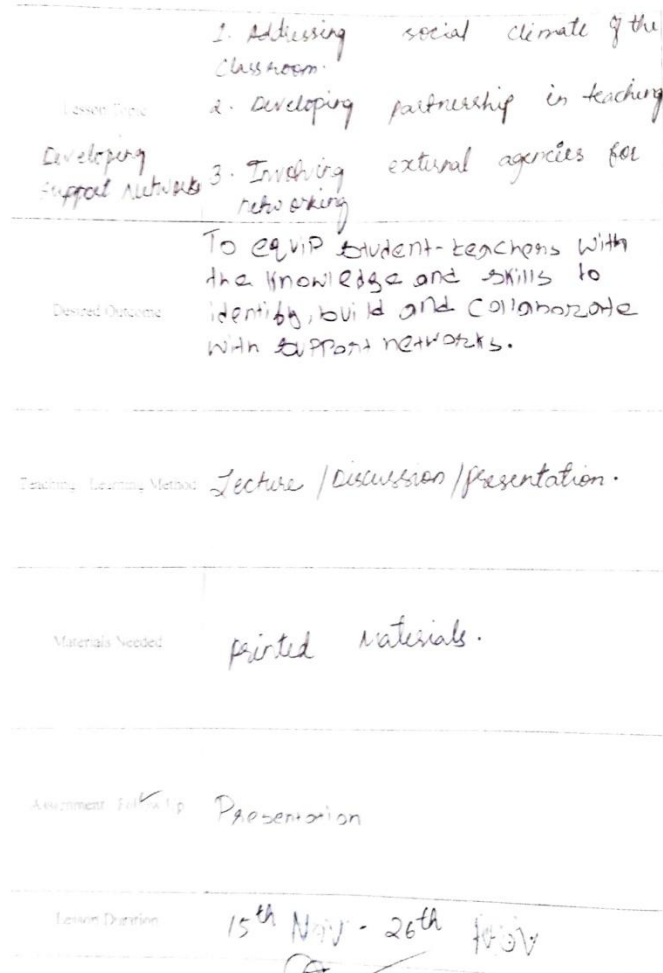 1. Addressing social climate of the
Classroom.
Lesson Topic
2. Developing partnership in teaching
Developing
Support Networks
3. Involving external agencies for
networking
To equip student-teachers with
the knowledge and skills to
Desired Outcome
identify, build and collaborate
with support networks.
Teaching - Learning Method
Lecture / Discussion / presentation.
Materials Needed
printed Materials.
Assignment / Follow Up
Presentation
Lesson Duration
15th Nov - 26th Nov